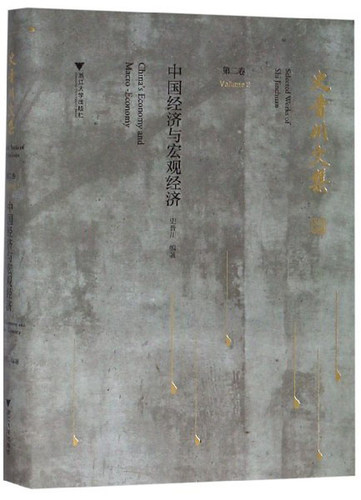 史晋川文集
Selected Works of
Shi Jinchuan
第二卷
Volume 2
中国经济与宏观经济
China's Economy and
Macro-Economy
史晋川 编著
浙江大学出版社
中国经济与宏观经济
浙江大学出版社